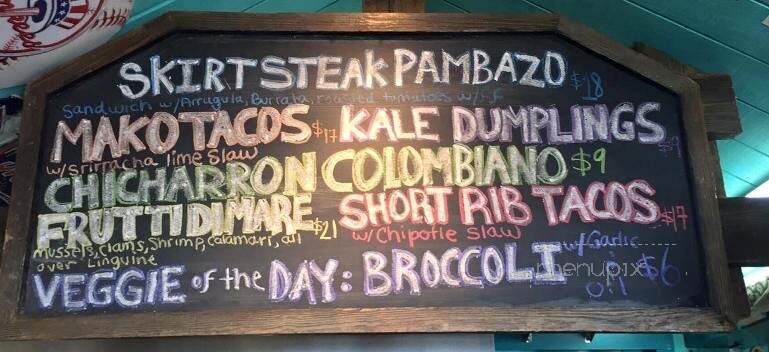 SKIRT STEAK PAMBAZO $18
Sandwich w/Arrugula, Burrata, roasted tomatoes w/F.F
MAKO TACOS $17 KALE DUMPLINGS $9
w/Srirracha lime Slaw
CHICHARRON COLOMBIANO $9
FRUTTI DI MARE $21 SHORT RIB TACOS $17
mussels, clams, Shrimp, calamari, all over Linguine
w/Chipotle Slaw
VEGGIE of the DAY: BROCCOLI w/Garlic oil $6
menupix